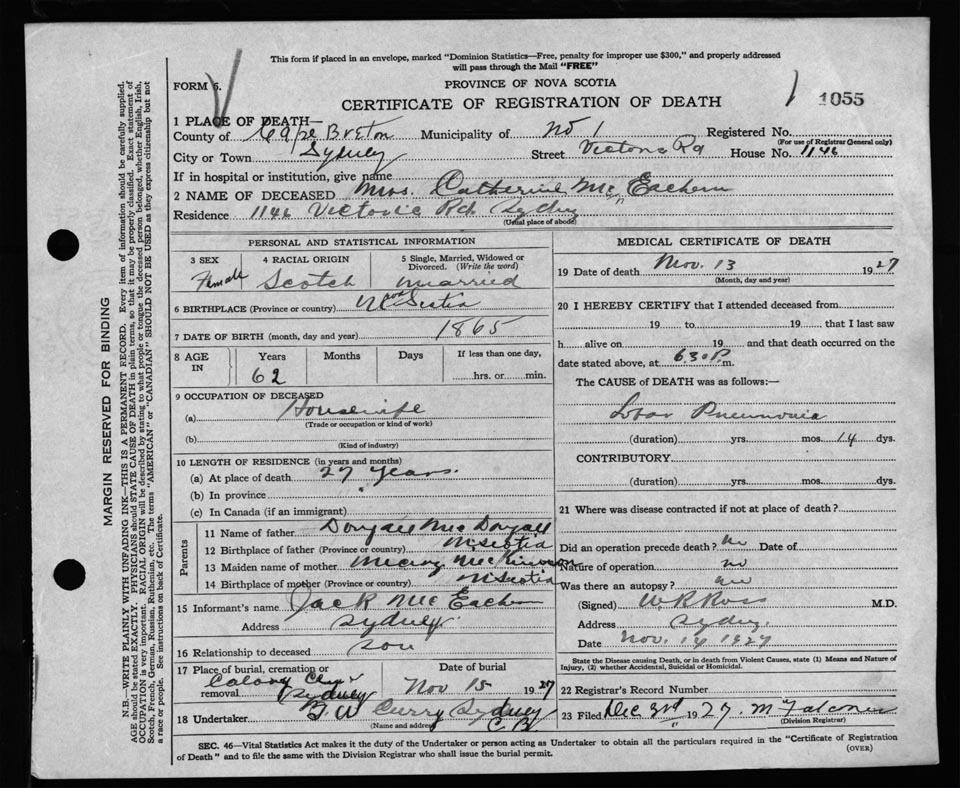 This form if placed in an envelope, marked "Dominion Statistics—Free, penalty for improper use $300," and properly addressed
will pass through the Mail "FREE"
FORM 6.
PROVINCE OF NOVA SCOTIA
CERTIFICATE OF REGISTRATION OF DEATH
1055
1 PLACE OF DEATH—
County of Cape Breton Municipality of No 1 Registered No.
(For use of Registrar General only)
City or Town Sydney Street Victoria Rd House No. 1146
If in hospital or institution, give name
2 NAME OF DECEASED Mrs. Catherine Mc Eachern
Residence 1146 Victoria Rd. Sydney
(Usual place of abode)
PERSONAL AND STATISTICAL INFORMATION
3 SEX 4 RACIAL ORIGIN 5 Single, Married, Widowed or
Divorced. (Write the word)
Female Scotch married
6 BIRTHPLACE (Province or country) Nova Scotia
7 DATE OF BIRTH (month, day and year) 1865
8 AGE IN Years Months Days If less than one day,
62 hrs. or min.
9 OCCUPATION OF DECEASED
(a) Housewife
(Trade or occupation or kind of work)
(b)
(Kind of industry)
10 LENGTH OF RESIDENCE (in years and months)
(a) At place of death 27 years.
(b) In province
(c) In Canada (if an immigrant)
Parents
11 Name of father Dougall MacDougall
12 Birthplace of father (Province or country) N Scotia
13 Maiden name of mother McKinnon
14 Birthplace of mother (Province or country) N Scotia
15 Informant's name Jack McEachern
Address Sydney
16 Relationship to deceased son
17 Place of burial, cremation or
removal Sydney
Date of burial
Nov 15 1927
18 Undertaker Curry Sydney
(Name and address) C.B.
MEDICAL CERTIFICATE OF DEATH
19 Date of death Nov. 13 1927
(Month, day and year)
20 I HEREBY CERTIFY that I attended deceased from
19 to 19 that I last saw
h alive on 19 and that death occurred on the
date stated above, at 6.30 P.m.
The CAUSE of DEATH was as follows:—
Lobar Pneumonia
(duration) yrs. mos. 14 dys.
CONTRIBUTORY
(duration) yrs. mos. dys.
21 Where was disease contracted if not at place of death?
Did an operation precede death? No Date of
Nature of operation no
Was there an autopsy?
(Signed) W R Ross M.D.
Address Sydney.
Date Nov. 14 1927
State the Disease causing Death, or in death from Violent Causes, state (1) Means and Nature of
Injury, (2) whether Accidental, Suicidal or Homicidal.
22 Registrar's Record Number
23 Filed Dec 3rd 1927. M Falconer
(Division Registrar)
SEC. 46—Vital Statistics Act makes it the duty of the Undertaker or person acting as Undertaker to obtain all the particulars required in the "Certificate of Registration
of Death" and to file the same with the Division Registrar who shall issue the burial permit.
(OVER)
MARGIN RESERVED FOR BINDING
N.B.—WRITE PLAINLY WITH UNFADING INK—THIS IS A PERMANENT RECORD. Every item of information should be carefully supplied.
AGE should be stated EXACTLY. PHYSICIANS should STATE CAUSE OF DEATH in plain terms, so that it may be properly classified. Exact statement of
OCCUPATION is very important. RACIAL ORIGIN will be described by stating to what people or tongue the deceased person belonged, whether English, Irish,
Scotch, French, German, Russian, Ruthenian, etc. The terms "AMERICAN" or "CANADIAN" SHOULD NOT BE USED as they express citizenship but not
a race or people. See instructions on back of Certificate.